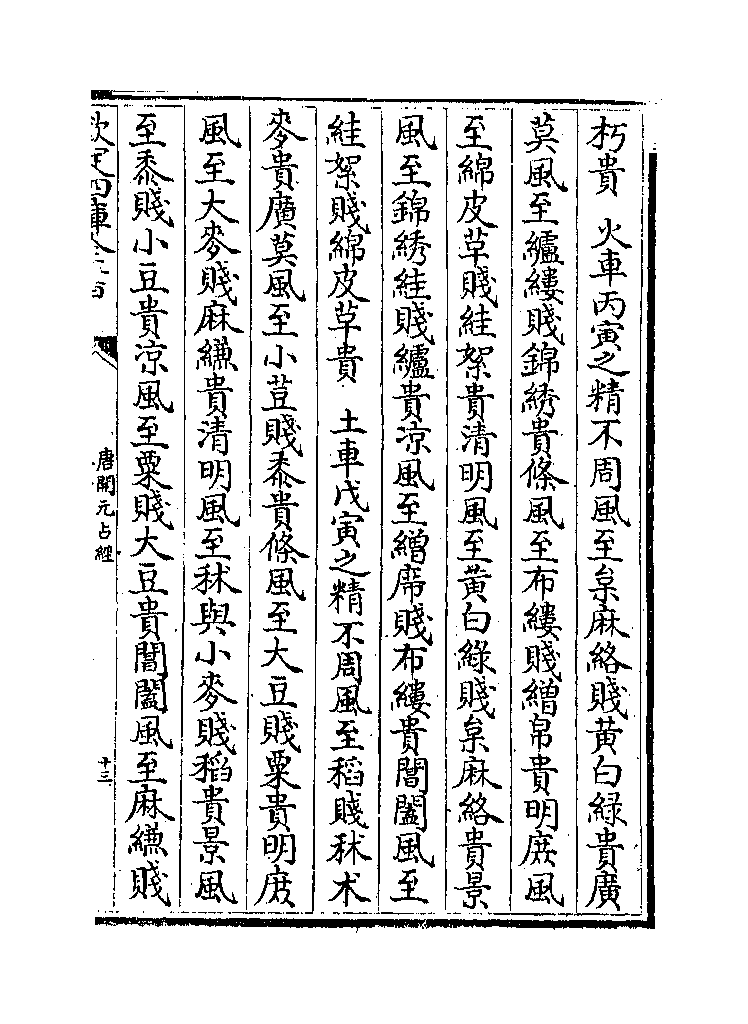 朽貴　火車丙寅之精不周風至枲麻絡賤黄白緑貴廣
莫風至纑縷賤錦綉貴條風至布縷賤繒帛貴明庶風
至綿皮草賤絓絮貴清明風至黄白綠賤枲麻絡貴景
風至錦綉絓賤纑貴凉風至繒席賤布縷貴閶闔風至
絓絮賤綿皮草貴　土車戊寅之精不周風至稻賤秫术
麥貴廣莫風至小荳賤黍貴條風至大豆賤粟貴明庶
風至大麥賤麻縑貴清明風至秫與小麥賤稻貴景風
至黍賤小豆貴凉風至粟賤大豆貴閶闔風至麻縑賤
欽定四庫全書
唐開元占經
十三